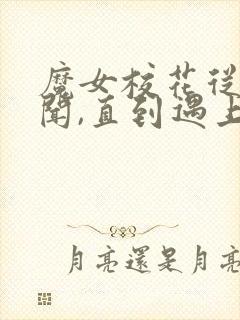 魔女校花從
聞,直到遇上
月亮還是月亮